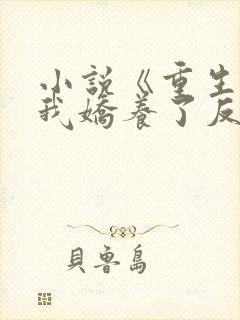 小説《重生
我嬌養了反
貝魯島